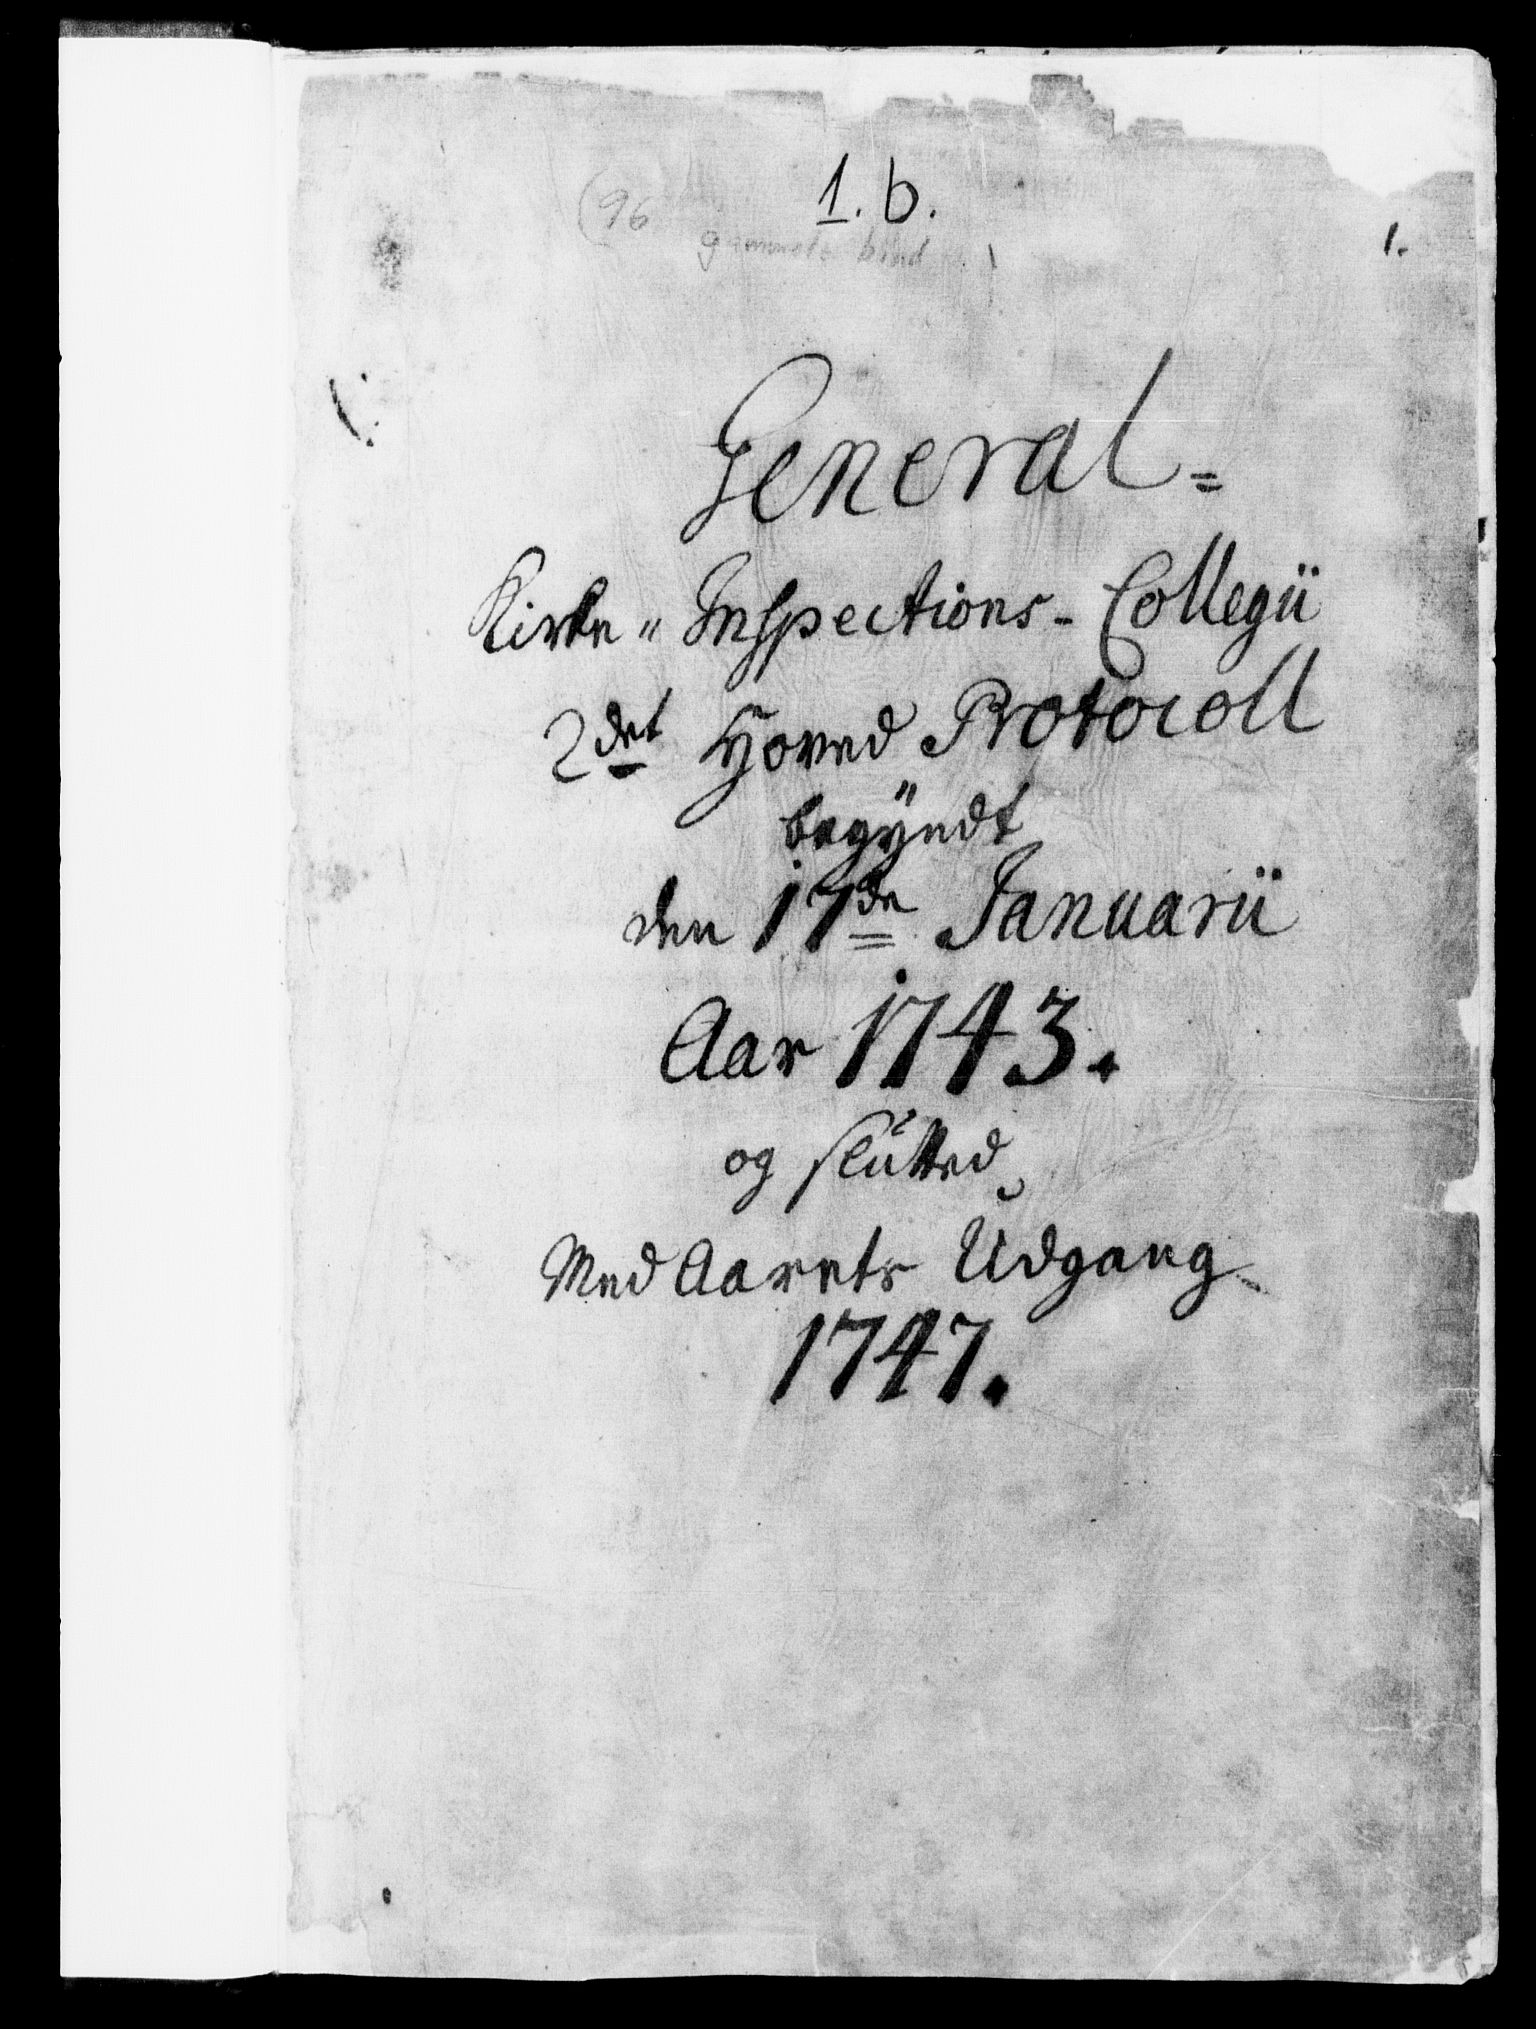 1. b.
(96
gammelt bind
1.
General=
Kirke„ Inspections- Collegii
2det Hoved Protocoll
begÿndt
den 17de Januarii
Aar 1743.
og slutted
Med Aarets Udgang
1747.